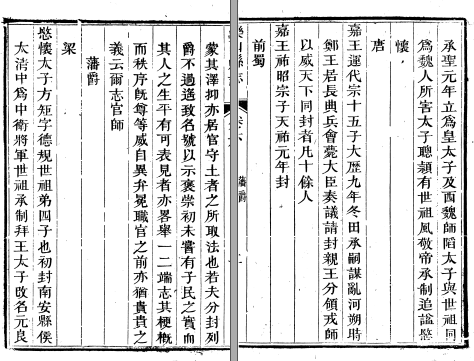 蒙其澤抑亦居官守土者之所取法也若夫分封列
爵不過遙致名號以示褒崇初未嘗有子民之實而
其人之生平有可表見者亦畧舉一二端志其梗概
而秩序旣尊等威自異弁冕職官之前亦猶貴貴之
義云爾志官師
藩爵
梁
愍懷太子方矩字德規世祖第四子也初封南安縣侯
太清中爲中衛將軍世祖承制拜王太子改名元良
承聖元年立爲皇太子及西魏師陷太子與世祖同
爲魏人所害太子聰頴有世祖風敬帝承制追謚愍
懷
唐
嘉王運代宗十五子大歷九年冬田承嗣謀亂河朔時
鄭王居長典兵會薨大臣奏議請封親王分領戎師
以威天下同封者凡十餘人
嘉王祐昭宗子天祐元年封
前蜀
樂山縣志 卷六 藩爵 一